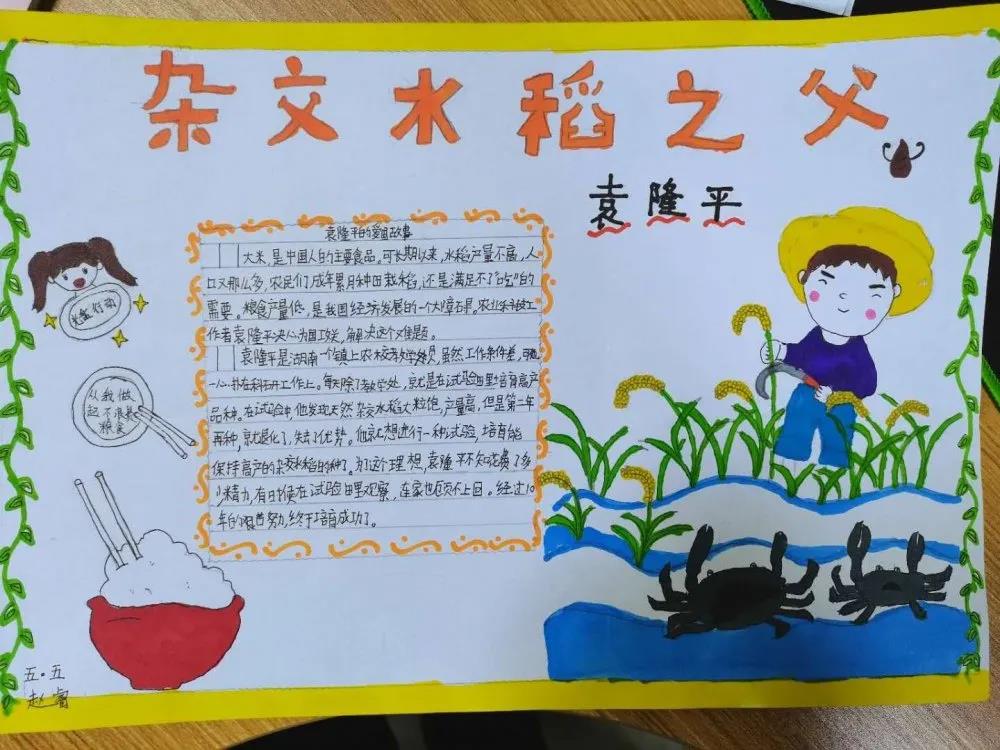 杂交水稻之父
袁隆平
袁隆平的爱国故事
大米,是中国人的主要食品。可长期以来,水稻产量不高,人
口又那么多,农民们成年累月种田栽稻,还是满足不了“吃”的
需要。粮食产量低,是我国经济发展的一个大障碍。农业科技工
作者袁隆平决心为国攻关,解决这个难题。
袁隆平是湖南一个镇上农校教学
虽然工作条件差,
一心扑在科研工作上。每天除了教学处,就是在试验田里培育高产
品种。在试验中,他发现天然杂交水稻大粒饱,产量高,但是第二年
再种,就退化了,失了优势。他就想进行一种试验,培育能
保持高产的杂交水稻的种了。为了这个理想,袁隆平不知花费了多
少精力,有时候在试验田里观察,连家也顾不上回。经过10
年的艰苦努力,终于培育成功了。
光盘行动
从我做
起不浪费
粮食
五·五
赵睿